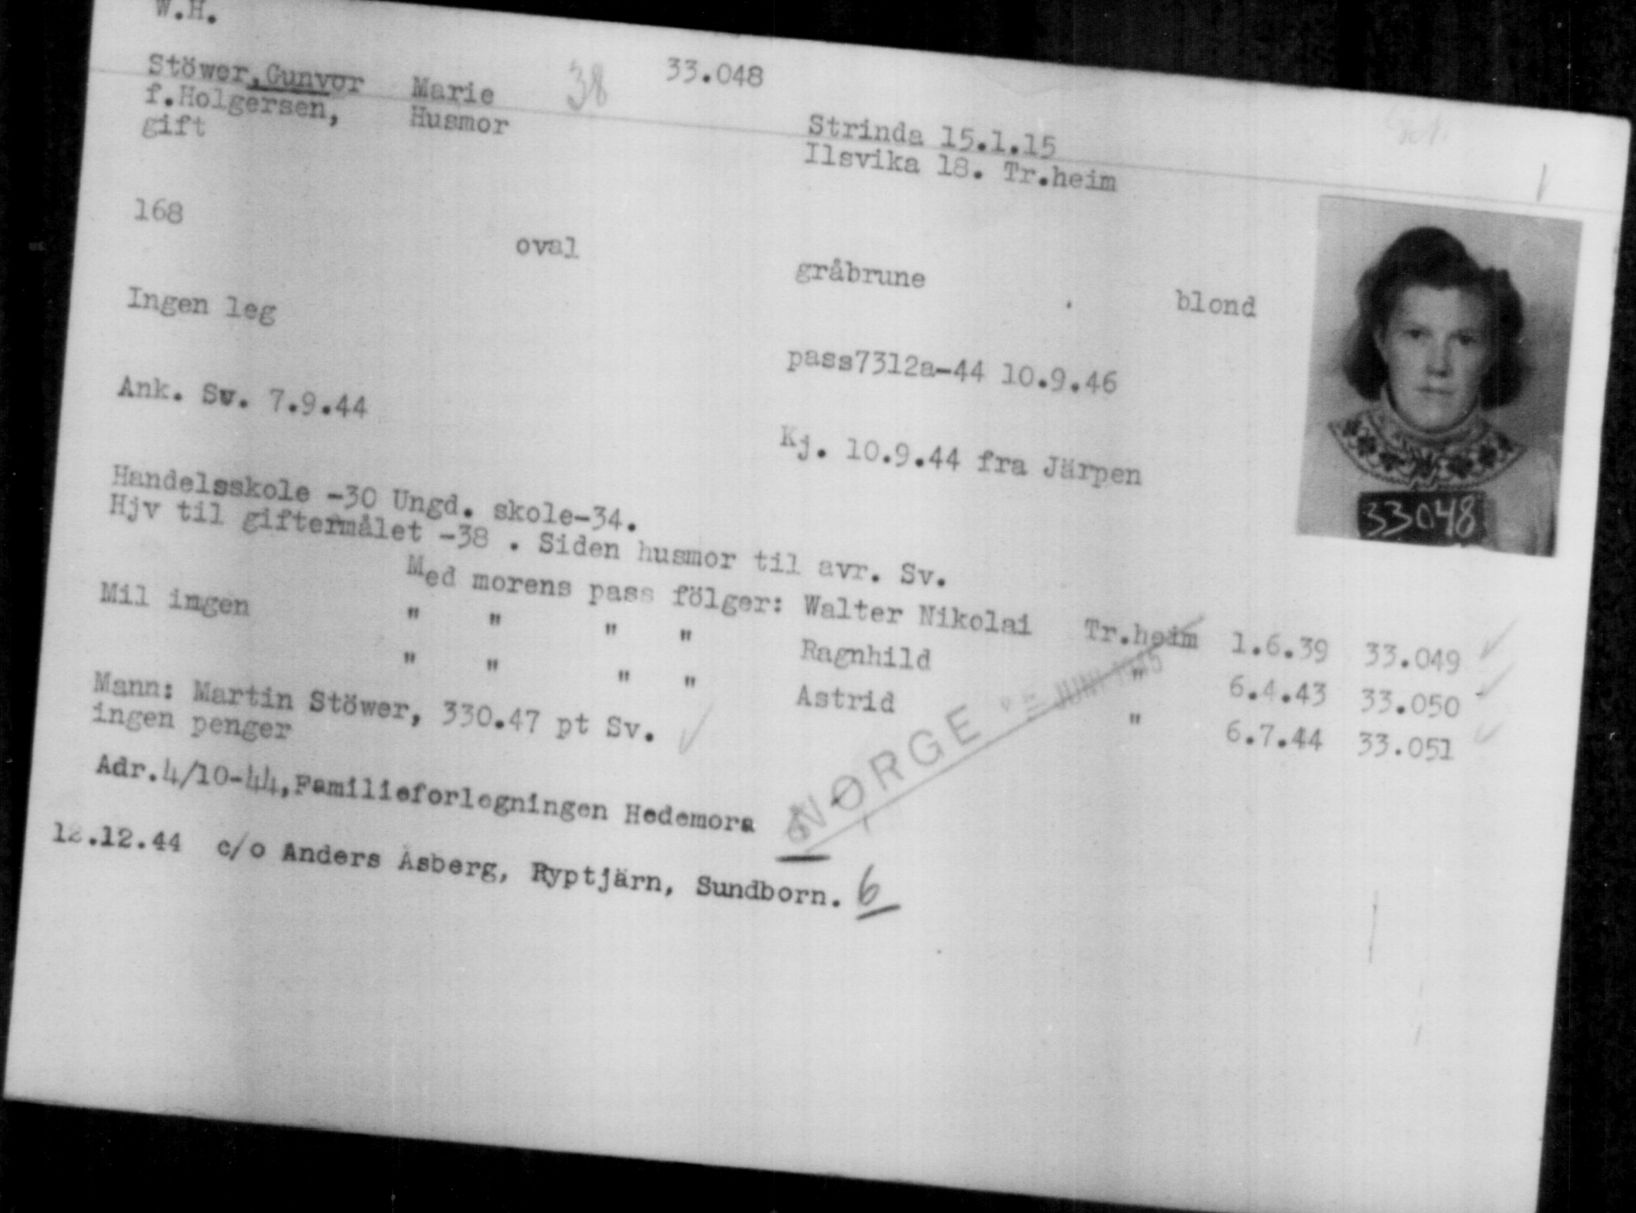 W.H.
Stöwer, Gunvor Marie 38 33.048
f.Holgersen, Husmor Strinda 15.1.15
gift Ilsvika 18. Tr.heim
168 oval gråbrune blond
Ingen leg pass7312a-44 10.9.46
Ank. Sv. 7.9.44 Kj. 10.9.44 fra Järpen
33048
Handelsskole -30 Ungd. skole-34.
Hjv til giftermålet -38 . Siden husmor til avr. Sv.
Med morens pass fölger: Walter Nikolai Tr.heim 1.6.39 33.049
Mil ingen " " " " Ragnhild " 6.4.43 33.050
" " " " Astrid " 6.7.44 33.051
Mann: Martin Stöwer, 330.47 pt Sv.
ingen penger
NORGE JUNI 1945
Adr.4/10-44,Familieforlegningen Hedemora
12.12.44 c/o Anders Åsberg, Ryptjärn, Sundborn. 6